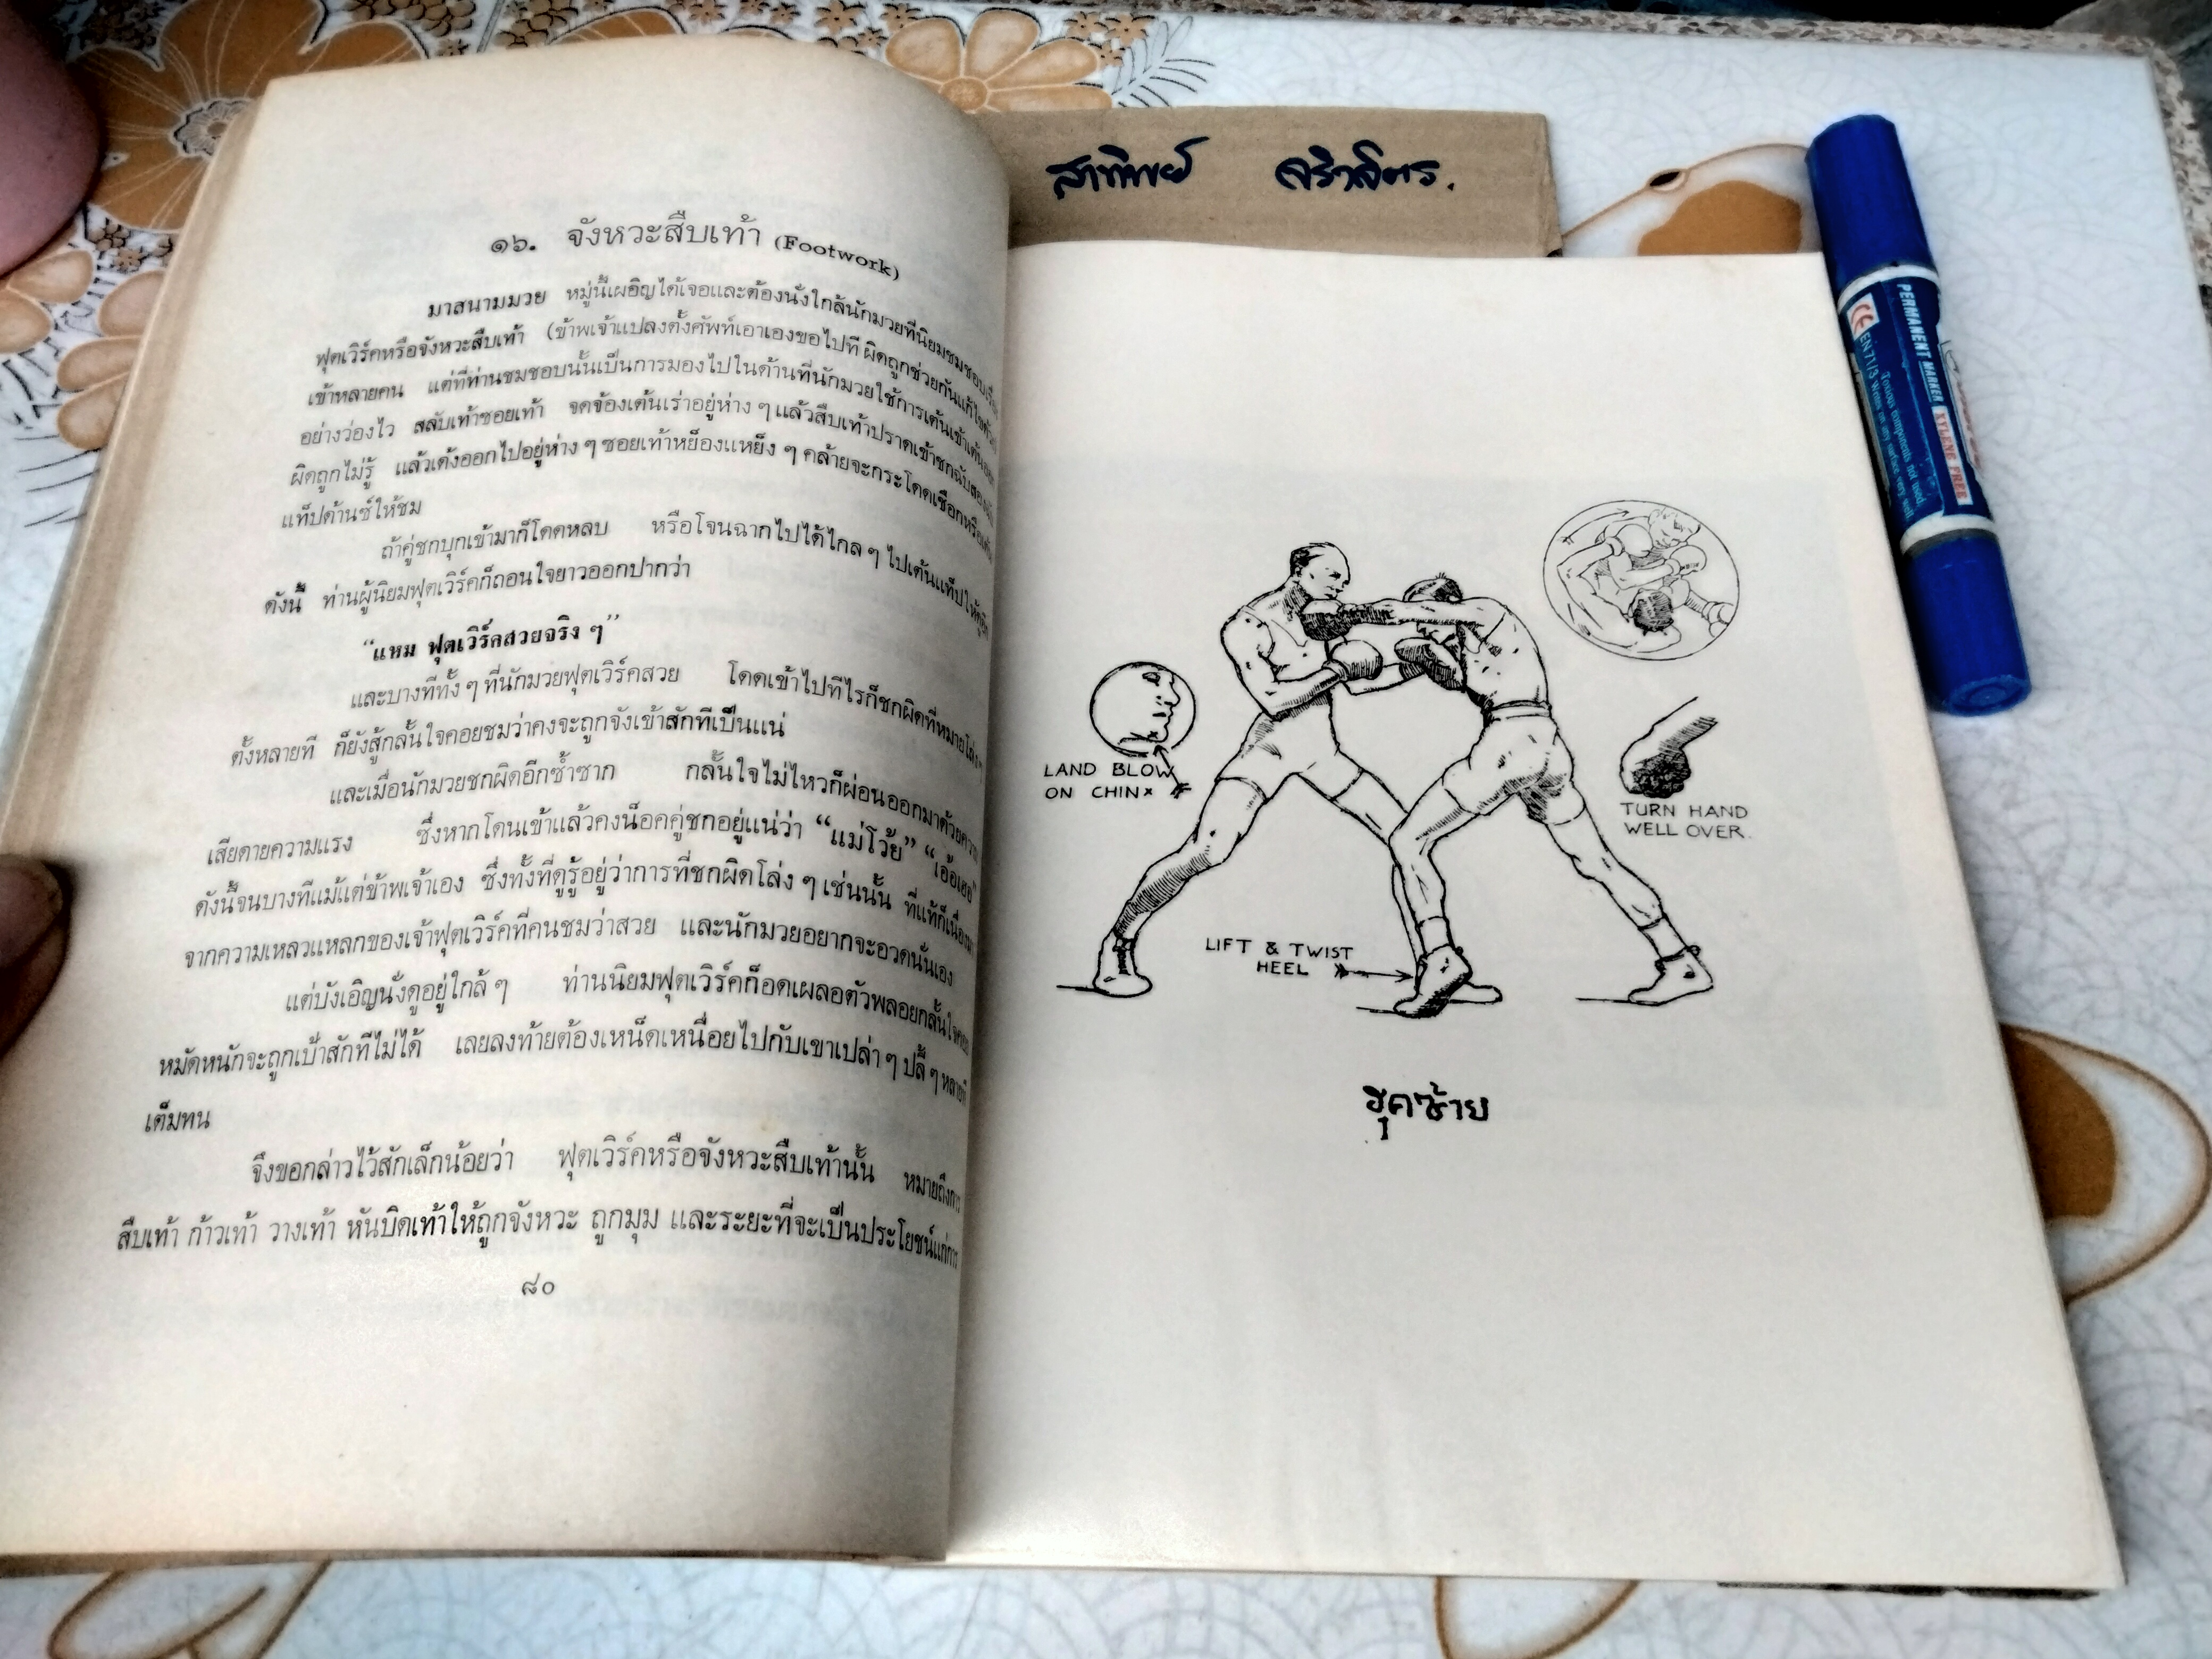 ๑๖. จังหวะสืบเท้า (Footwork)
มาสนามมวย หมู่นี้เผอิญได้เจอและต้องนั่งใกล้นักมวยที่นิยมชมชอบเรื่อง
ฟุตเวิร์คหรือจังหวะสืบเท้า (ข้าพเจ้าแปลงตั้งศัพท์เอาเองขอไปที ผิดถูกช่วยกันแก้ไขด้วย)
เข้าหลายคน แต่ที่ท่านชมชอบนั้นเป็นการมองไปในด้านที่นักมวยใช้การเต้นเข้าเต้นออก
อย่างว่องไว สลับเท้าซอยเท้า จดจ้องเต้นเร่าอยู่ห่าง ๆ แล้วสืบเท้าปราดเข้าชกฉับสองฉับ
ผิดถูกไม่รู้ แล้วเด้งออกไปอยู่ห่าง ๆ ซอยเท้าหย็องแหย็ง ๆ คล้ายจะกระโดดเชือกหรือเต้น
แท็ปด้านซ์ให้ชม
ถ้าคู่ชกบุกเข้ามาก็โดดหลบ หรือโจนฉากไปได้ไกล ๆ ไปเต้นแท็ปให้ดูอีก
ดังนี้ ท่านผู้นิยมฟุตเวิร์คก็ถอนใจยาวออกปากว่า
“แหม ฟุตเวิร์คสวยจริง ๆ”
และบางทีทั้ง ๆ ที่นักมวยฟุตเวิร์คสวย โดดเข้าไปทีไรก็ชกผิดที่หมายโล่งๆ
ตั้งหลายที ก็ยังสู้กลั้นใจคอยชมว่าคงจะถูกจังเข้าสักทีเป็นแน่
และเมื่อนักมวยชกผิดอีกซ้ำซาก กลั้นใจไม่ไหวก็ผ่อนออกมาด้วยความ
เสียดายความแรง ซึ่งหากโดนเข้าแล้วคงน็อคคู่ชกอยู่แน่ว่า “แม่โว้ย” “เอ้อเฮอ”
ดังนี้จนบางทีแม้แต่ข้าพเจ้าเอง ซึ่งทั้งที่ดูรู้อยู่ว่าการที่ชกผิดโล่ง ๆ เช่นนั้น ที่แท้ก็เนื่องมา
จากความเหลวแหลกของเจ้าฟุตเวิร์คที่คนชมว่าสวย และนักมวยอยากจะอวดนั่นเอง
แต่บังเอิญนั่งดูอยู่ใกล้ ๆ ท่านนิยมฟุตเวิร์คก็อดเผลอตัวพลอยกลั้นใจคอย
หมัดหนักจะถูกเป้าสักทีไม่ได้ เลยลงท้ายต้องเหน็ดเหนื่อยไปกับเขาเปล่า ๆ ปลี้ ๆ หลายที
เต็มทน
จึงขอกล่าวไว้สักเล็กน้อยว่า ฟุตเวิร์คหรือจังหวะสืบเท้านั้น หมายถึงการ
สืบเท้า ก้าวเท้า วางเท้า หันบิดเท้าให้ถูกจังหวะ ถูกมุม และระยะที่จะเป็นประโยชน์แก่การ
๘๐
สาทิพย์
LAND BLOW
ON CHIN
TURN HAND
WELL OVER.
LIFT & TWIST
HEEL
ฮุคซ้าย
PERMANENT MARKER XYLENE FREE
CE EN71/3 Writes on any surface very well
Toxious components not used.